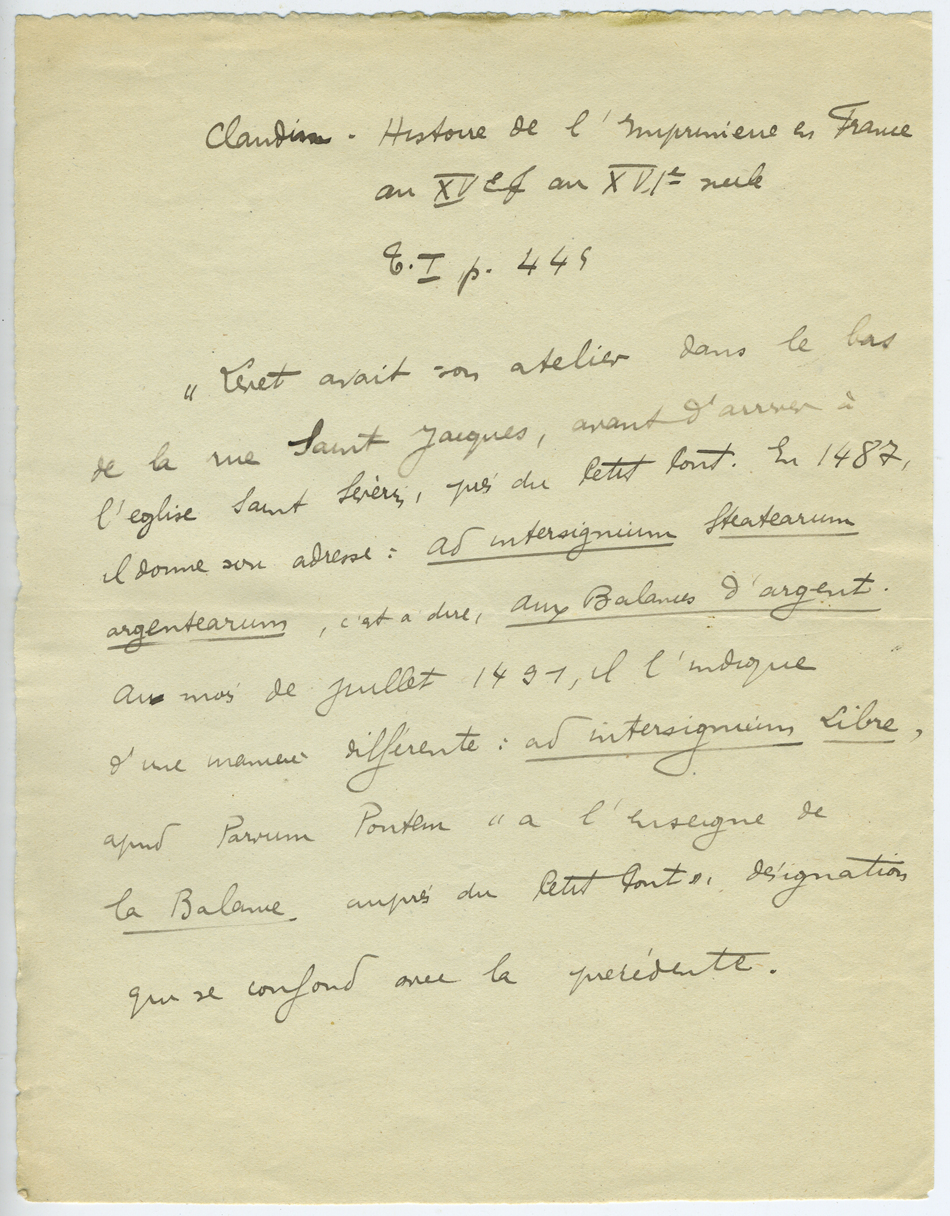 Claudin - Histoire de l'Imprimerie en France
au XVe et au XVIe siècle
T. I p. 449
" Levet avait son atelier dans le bas
de la rue Saint Jacques, avant d'arriver à
l'eglise Saint Séverin, près du Petit Pont. En 1487,
il donne son adresse : ad intersignium Steatearum
argentearum, c'est a dire, aux Balances d'argent.
Au mois de juillet 1491, il l'indique
d'une maniere différente : ad intersignium Libre,
apud Parvum Pontem " a l'enseigne de
la Balance, auprès du Petit Pont », désignation
qui se confond avec la précédente.